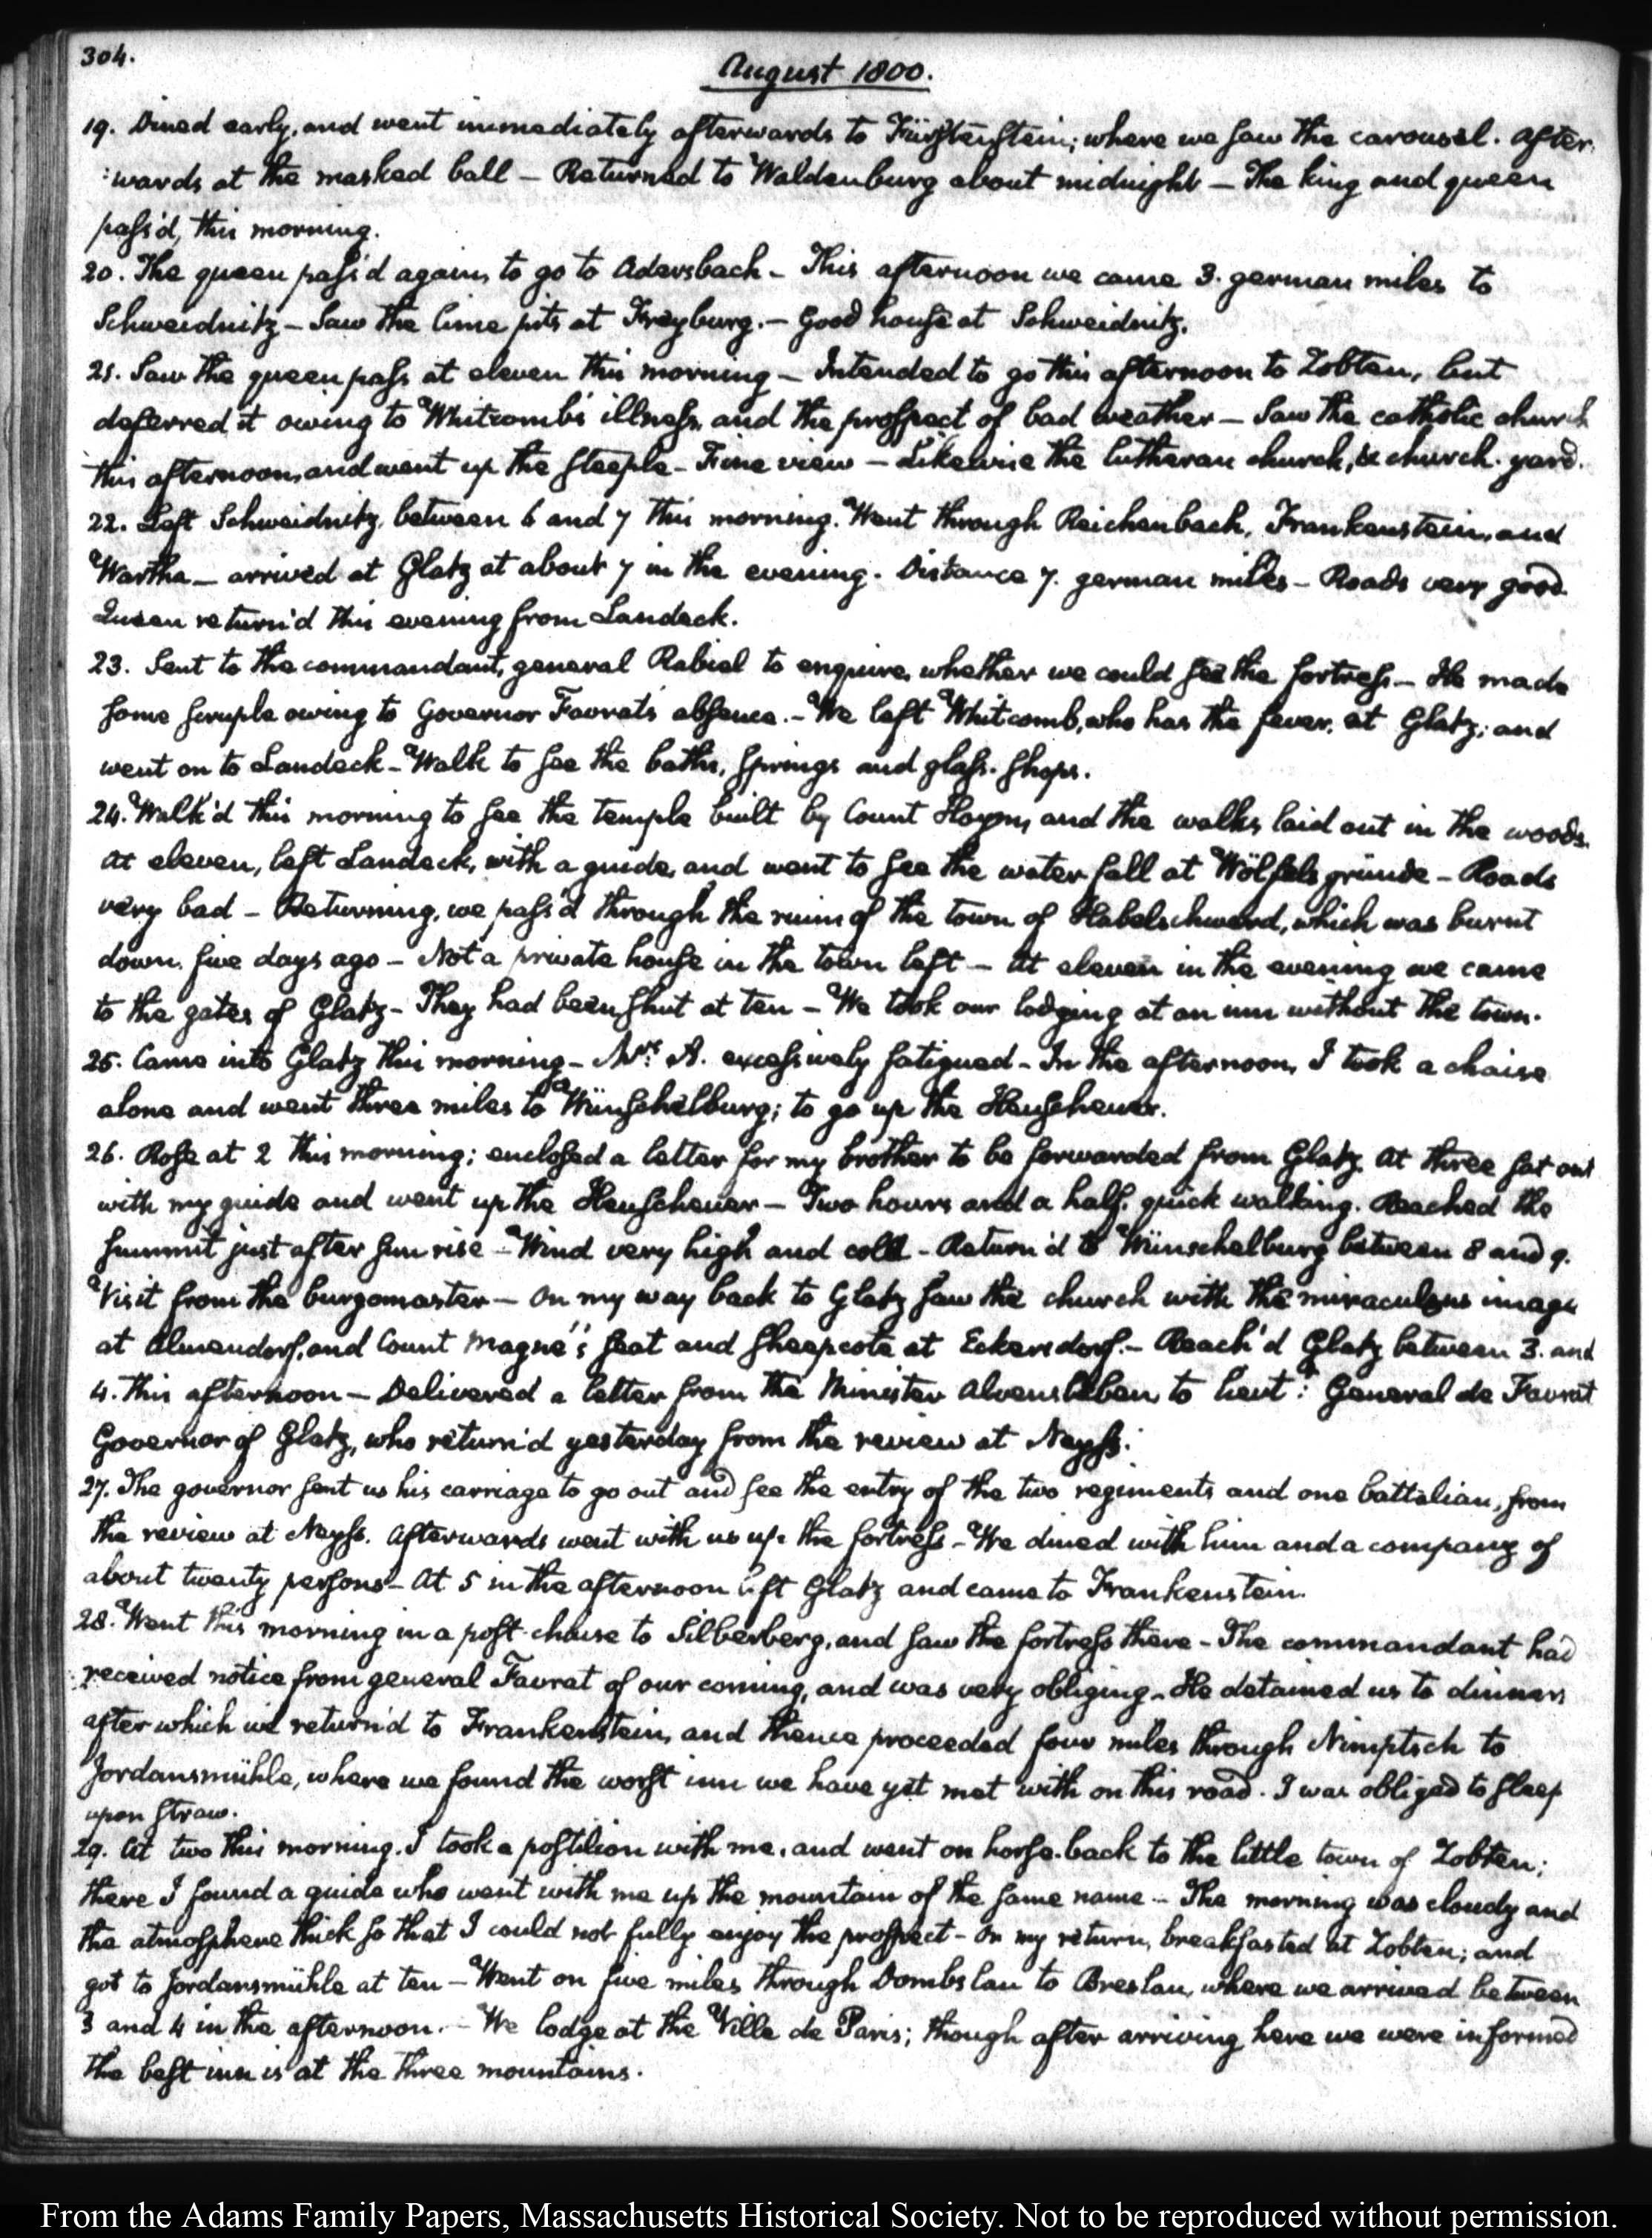 304.
August 1800.
19. Dined early, and went immediately afterwards to Fürstenstein; where we saw the carousel. After-
:wards at the masked ball — Returned to Waldenburg about midnight — The king and queen
pass'd, this morning.
20. The queen pass'd again, to go to Adersbach — This afternoon we came 3. german miles to
Schweidnitz — Saw the lime pits at Freyburg. — Good house at Schweidnitz.
21. Saw the queen pass at eleven this morning — Intended to go this afternoon to Zobten, but
deferred it owing to Whitcomb's illness, and the prospect of bad weather — Saw the catholic church
this afternoon, and went up the steeple — Fine view — Likewise the lutheran church, & church-yard.
22. Left Schweidnitz, between 6 and 7 this morning. Went through Reichenbach, Frankenstein, and
Wartha — arrived at Glatz at about 7 in the evening. Distance 7. german miles — Roads very good
Queen return'd this evening from Landeck.
23. Sent to the commandant, general Rabiel to enquire, whether we could see the fortress — He made
some scruple owing to Governor Favrat's absence. — We left Whitcomb, who has the fever, at Glatz; and
went on to Landeck — Walk to see the baths, springs and glass-shops.
24. Walk'd this morning to see the temple built by Count Hoym, and the walks laid out in the woods.
At eleven, left Landeck, with a guide, and went to see the water fall at Wölfelsgründe — Roads
very bad — Returning, we pass'd through the ruins of the town of Habelschwerd, which was burnt
down, five days ago — Not a private house in the town left — At eleven in the evening we came
to the gates of Glatz — They had been shut at ten — We took our lodging at an inn without the town.
25. Came into Glatz this morning — Mrs. A. excessively fatigued — In the afternoon, I took a chaise
alone and went three miles to Wünschelburg; to go up the Heuscheuer.
26. Rose at 2 this morning; enclosed a letter for my brother to be forwarded from Glatz. At three sat out
with my guide and went up the Heuscheuer — Two hours and a half, quick walking. Reached the
summit just after sun rise — Wind very high and cold — Return'd to Wünschelburg between 8 and 9.
Visit from the burgomaster — On my way back to Glatz saw the church with the miraculous image
at Almendorf, and Count Magné's seat and sheepcote at Eckersdorf. — Reach'd Glatz between 3. and
4. this afternoon — Delivered a letter from the Minister Alvensleben, to lieut: General de Favrat
Governor of Glatz, who return'd yesterday from the review at Neyss.
27. The governor sent us his carriage to go out and see the entry of the two regiments and one battalion, from
the review at Neyss. Afterwards went with us up the fortress — We dined with him and a company of
about twenty persons — At 5 in the afternoon left Glatz and came to Frankenstein.
28. Went this morning in a post-chaise to Silberberg, and saw the fortress there — The commandant had
received notice from general Favrat of our coming, and was very obliging — He detained us to dinner
after which we return'd to Frankenstein, and thence proceeded four miles through Nimptsch to
Jordansmühle, where we found the worst inn we have yet met with on this road. I was obliged to sleep
upon straw.
29. At two this morning, I took a postilion with me, and went on horse-back to the little town of Zobten;
there I found a guide who went with me up the mountain of the same name — The morning was cloudy and
the atmosphere thick so that I could not fully enjoy the prospect — On my return, breakfasted at Zobten; and
got to Jordansmühle at ten — Went on five miles through Dombslau to Breslau, where we arrived between
3 and 4 in the afternoon. — We lodge at the Ville de Paris; though after arriving here we were informed
the best inn is at the three mountains.
From the Adams Family Papers, Massachusetts Historical Society. Not to be reproduced without permission.